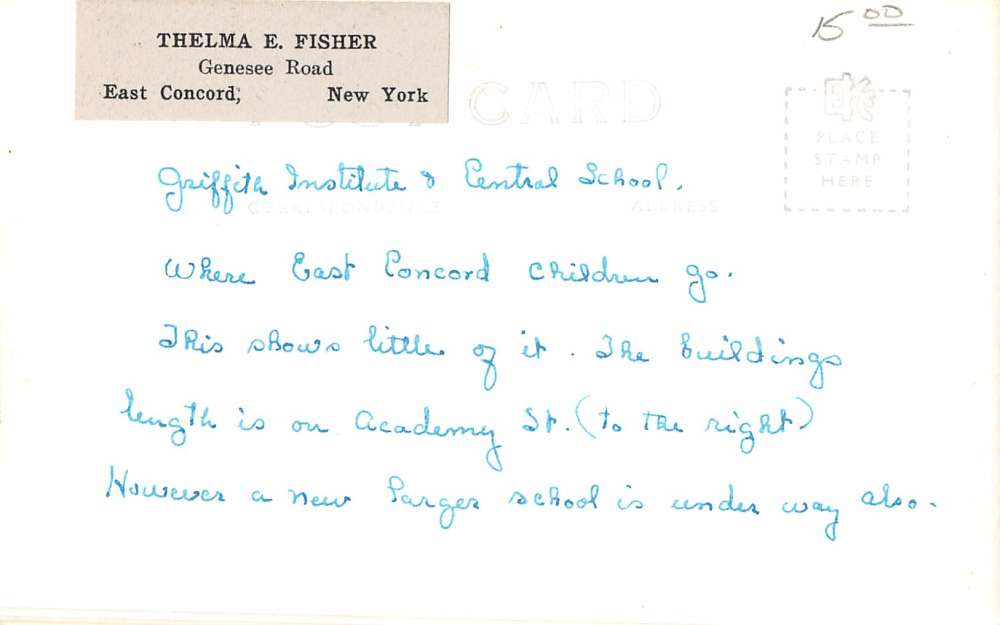 15 00
THELMA E. FISHER
Genesee Road
East Concord, New York
POST CARD
PLACE
STAMP
HERE
CORRESPONDENCE ADDRESS
Griffith Institute & Central School.
Where East Concord children go.
This shows little of it. The buildings
length is on Academy St. (to the right)
However a new larger school is under way also.